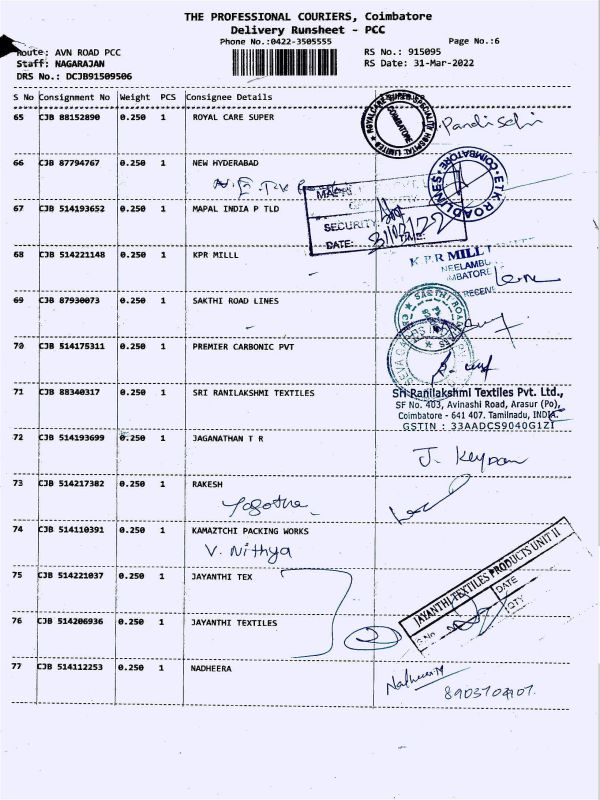 THE PROFESSIONAL COURIERS, Coimbatore
Delivery Runsheet - PCC
Phone No.:0422-3505555
Page No.:6
Route: AVN ROAD PCC
RS No.: 915095
Staff: NAGARAJAN
RS Date: 31-Mar-2022
DRS No.: DCJB91509506
S No Consignment No Weight PCS Consignee Details
65 CJB 88152890 0.250 1 ROYAL CARE SUPER
ROYALCARE SUPER SPECIALITY HOSPITAL LIMITED
COIMBATORE
66 CJB 87794767 0.250 1 NEW HYDERABAD
ETK ROADLINES COIMBATORE
67 CJB 514193652 0.250 1 MAPAL INDIA P TLD
SECURITY
DATE:
68 CJB 514221148 0.250 1 KPR MILLL
K P R MILL
NEELAMBU
69 CJB 87930073 0.250 1 SAKTHI ROAD LINES
70 CJB 514175311 0.250 1 PREMIER CARBONIC PVT
71 CJB 88340317 0.250 1 SRI RANILAKSHMI TEXTILES
Sri Ranilakshmi Textiles Pvt. Ltd.,
SF No. 403, Avinashi Road, Arasur (Po),
Coimbatore - 641 407. Tamilnadu, INDIA.
GSTIN : 33AADCS9040G1ZI
72 CJB 514193699 0.250 1 JAGANATHAN T R
73 CJB 514217382 0.250 1 RAKESH
74 CJB 514110391 0.250 1 KAMAZTCHI PACKING WORKS
V. Nithya
75 CJB 514221037 0.250 1 JAYANTHI TEX
JAYANTHI TEXTILES PRODUCTS UNIT II
S.No
DATE
QTY
76 CJB 514206936 0.250 1 JAYANTHI TEXTILES
2
77 CJB 514112253 0.250 1 NADHEERA